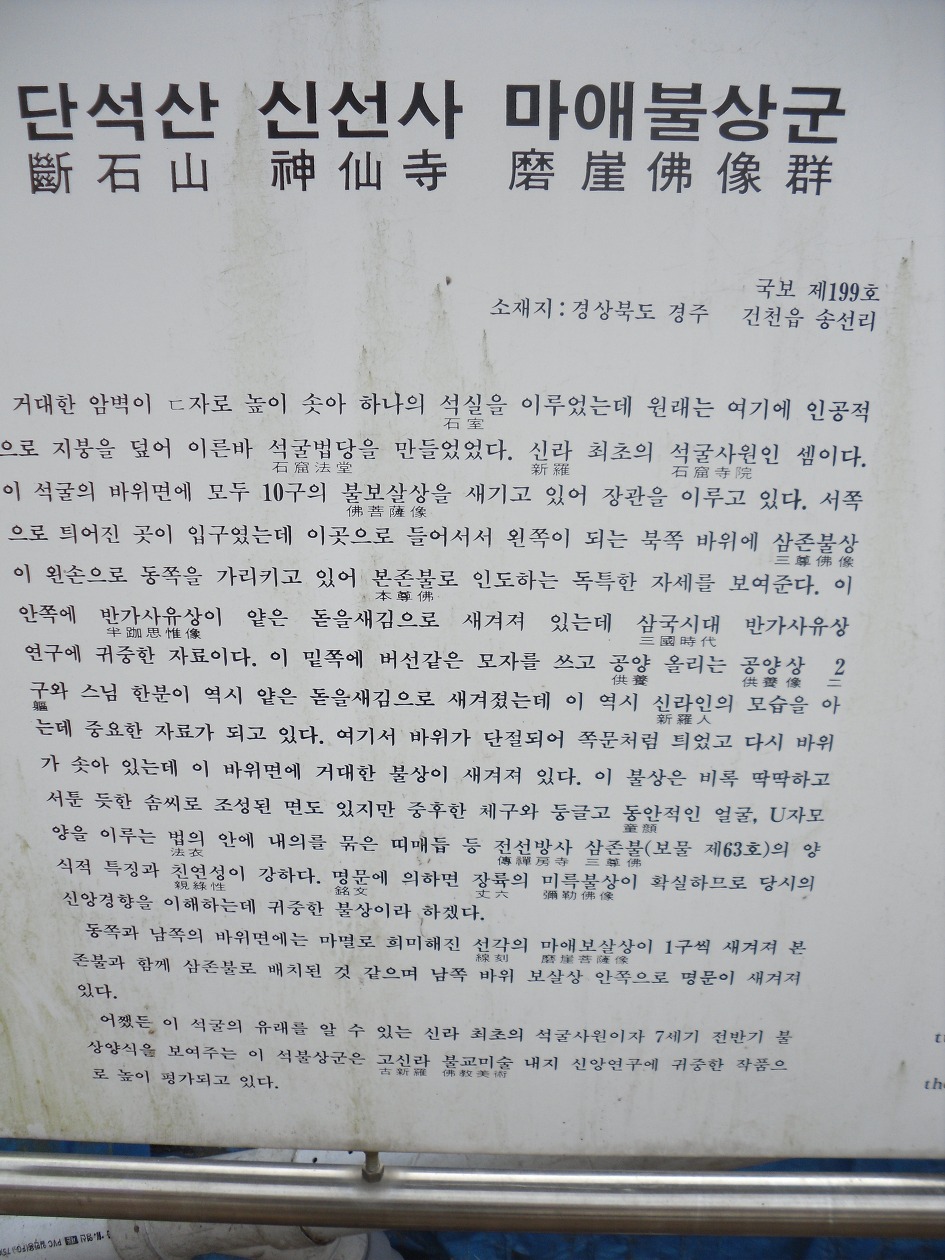 단석산 신선사 마애불상군
斷石山 神仙寺 磨崖佛像群
국보 제199호
소재지 : 경상북도 경주 건천읍 송선리
거대한 암벽이 ㄷ자로 높이 솟아 하나의 석실을 이루었는데 원래는 여기에 인공적
石室
으로 지붕을 덮어 이른바 석굴법당을 만들었었다. 신라 최초의 석굴사원인 셈이다.
石窟法堂 新羅 石窟寺院
이 석굴의 바위면에 모두 10구의 불보살상을 새기고 있어 장관을 이루고 있다. 서쪽
佛菩薩像
으로 틔어진 곳이 입구였는데 이곳으로 들어서서 왼쪽이 되는 북쪽 바위에 삼존불상
三尊佛像
이 왼손으로 동쪽을 가리키고 있어 본존불로 인도하는 독특한 자세를 보여준다. 이
本尊佛
안쪽에 반가사유상이 얕은 돋을새김으로 새겨져 있는데 삼국시대 반가사유상
半跏思惟像 三國時代
연구에 귀중한 자료이다. 이 밑쪽에 버선같은 모자를 쓰고 공양 올리는 공양상 2
供養 供養像 二
구와 스님 한분이 역시 얕은 돋을새김으로 새겨졌는데 이 역시 신라인의 모습을 아
軀 新羅人
는데 중요한 자료가 되고 있다. 여기서 바위가 단절되어 쪽문처럼 틔었고 다시 바위
가 솟아 있는데 이 바위면에 거대한 불상이 새겨져 있다. 이 불상은 비록 딱딱하고
서툰 듯한 솜씨로 조성된 면도 있지만 중후한 체구와 둥글고 동안적인 얼굴, U자모
童顔
양을 이루는 법의 안에 내의를 묶은 띠매듭 등 전선방사 삼존불(보물 제63호)의 양
法衣 傳禪房寺 三尊佛
식적 특징과 친연성이 강하다. 명문에 의하면 장륙의 미륵불상이 확실하므로 당시의
親緣性 銘文 丈六 彌勒佛像
신앙경향을 이해하는데 귀중한 불상이라 하겠다.
동쪽과 남쪽의 바위면에는 마멸로 희미해진 선각의 마애보살상이 1구씩 새겨져 본
線刻 磨崖菩薩像
존불과 함께 삼존불로 배치된 것 같으며 남쪽 바위 보살상 안쪽으로 명문이 새겨져
있다.
어쨌든 이 석굴의 유래를 알 수 있는 신라 최초의 석굴사원이자 7세기 전반기 불
상양식을 보여주는 이 석불상군은 고신라 불교미술 내지 신앙연구에 귀중한 작품으
古新羅 佛敎美術
로 높이 평가되고 있다.